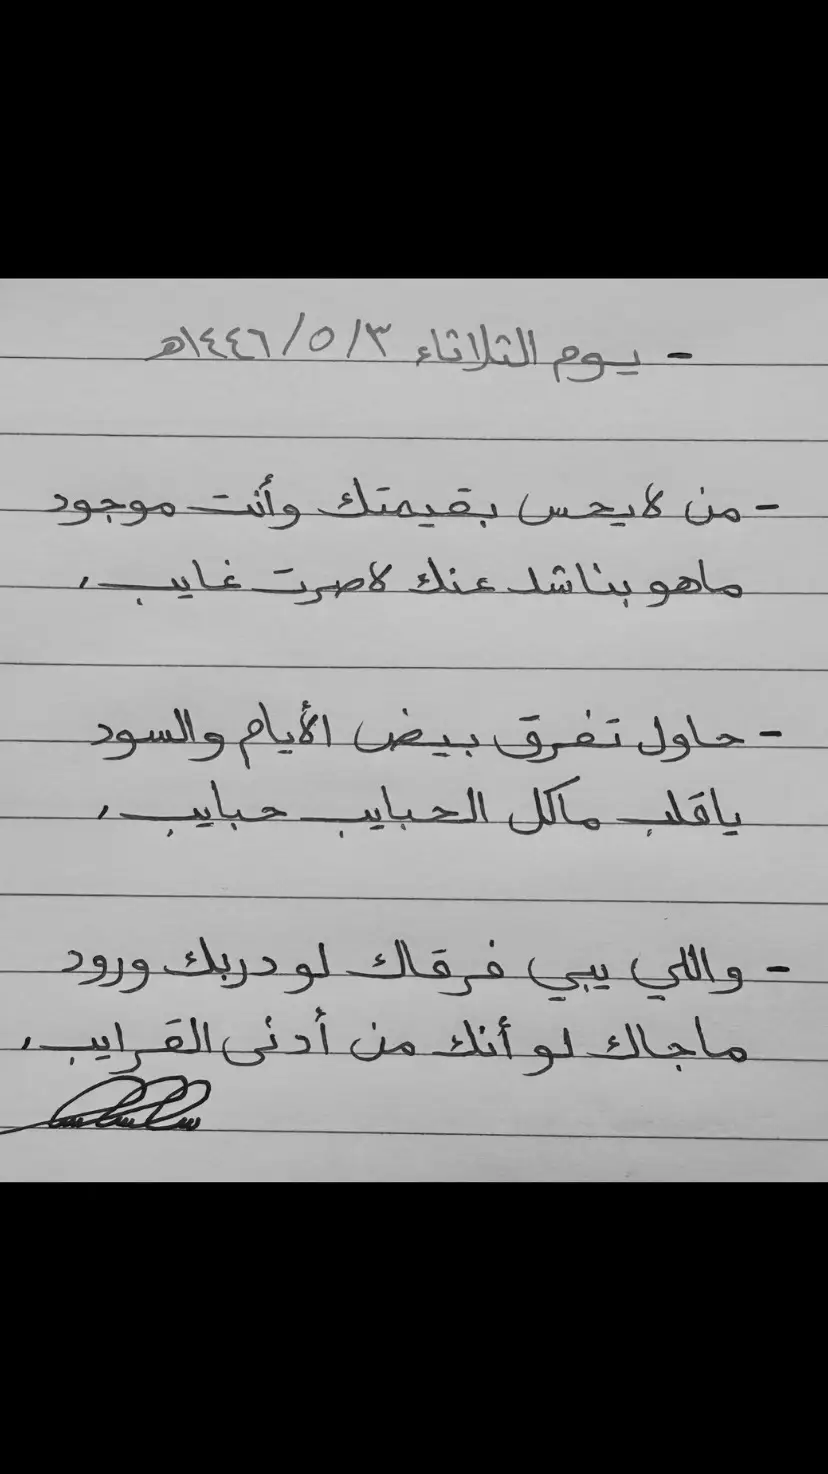 - يوم الثلاثاء ١٤٤٦/٥/٣هـ
- من لايحس بقيمتك وأنت موجود
ماهو بناشد عنك لاصرت غايب،
- حاول تفرق بيض الأيام والسود
ياقلب ماكل الحبايب حبايب،
- واللي يبي فرقاك لو دربك ورود
ماجاك لو أنك من أدنى القرايب،